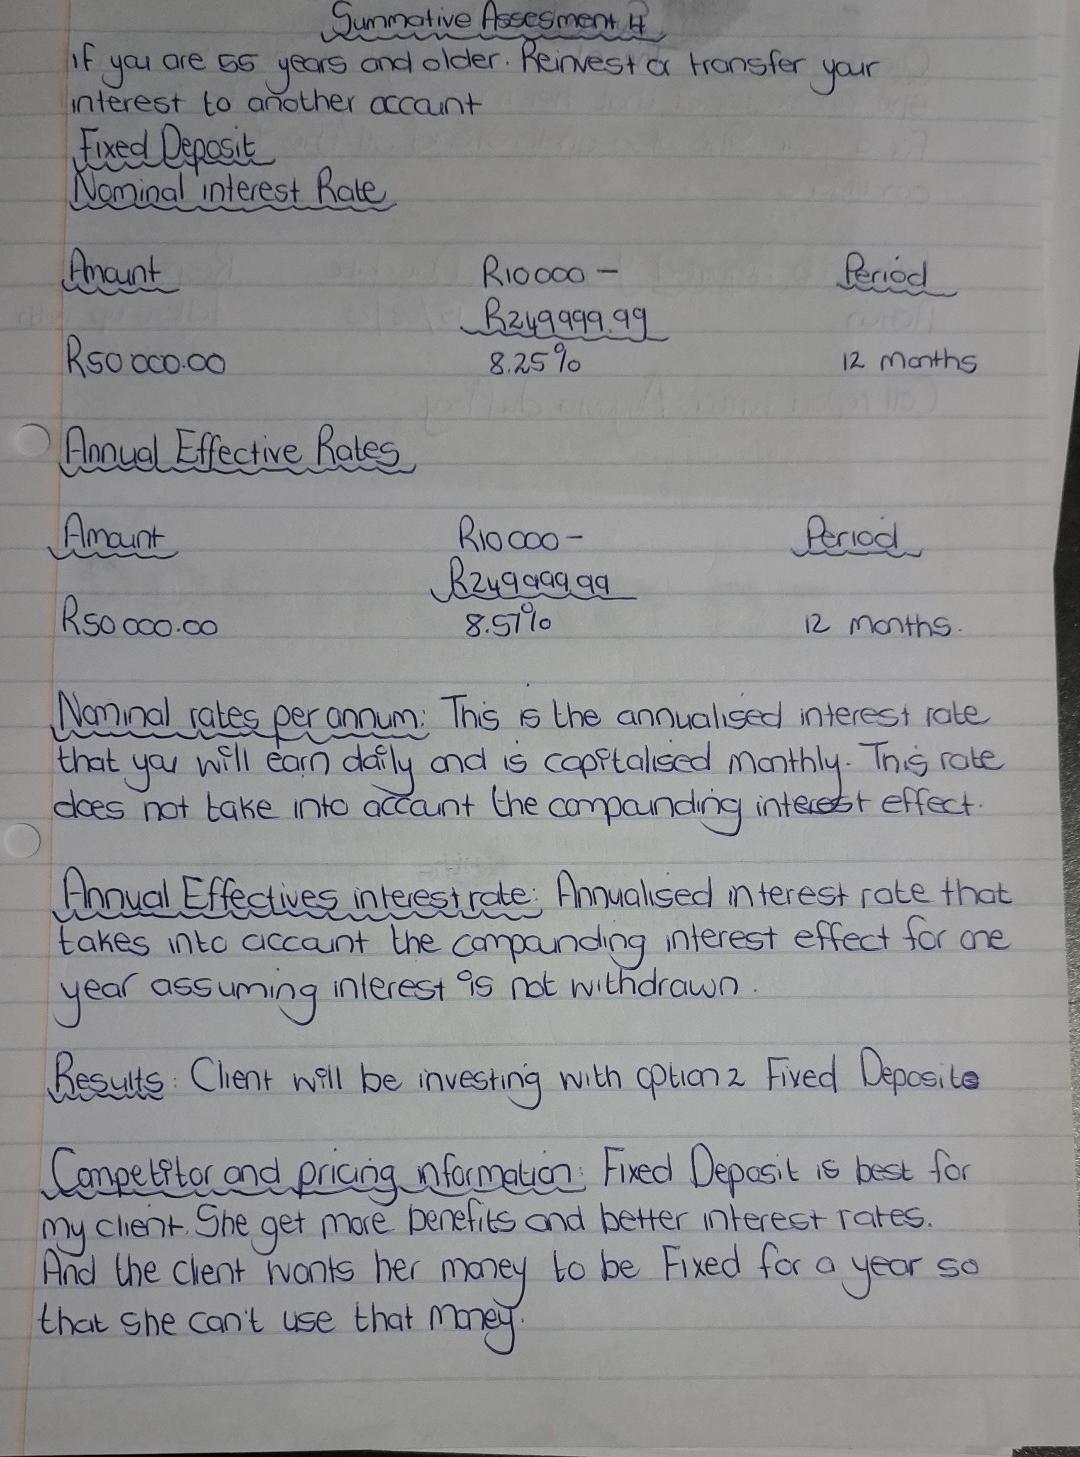 Summative Assesment 4
If you are 55 years and older. Reinvest or transfer your
interest to another account
Fixed Deposit
Nominal interest Rate
Amount R10 000 - Period
R249 999.99
R50 000.00 8.25% 12 Months
Annual Effective Rates
Amount R10 000 - Period
R249 999.99
R50 000.00 8.57% 12 Months.
Nominal rates per annum: This is the annualised interest rate
that you will earn daily and is capitalised monthly. This rate
does not take into account the compounding interest effect.
Annual Effectives interest rate: Annualised interest rate that
takes into account the compounding interest effect for one
year assuming interest is not withdrawn.
Results: Client will be investing with option 2 Fixed Deposits
Competitor and pricing information: Fixed Deposit is best for
my client. She get more benefits and better interest rates.
And the client wants her money to be Fixed for a year so
that she can't use that money.